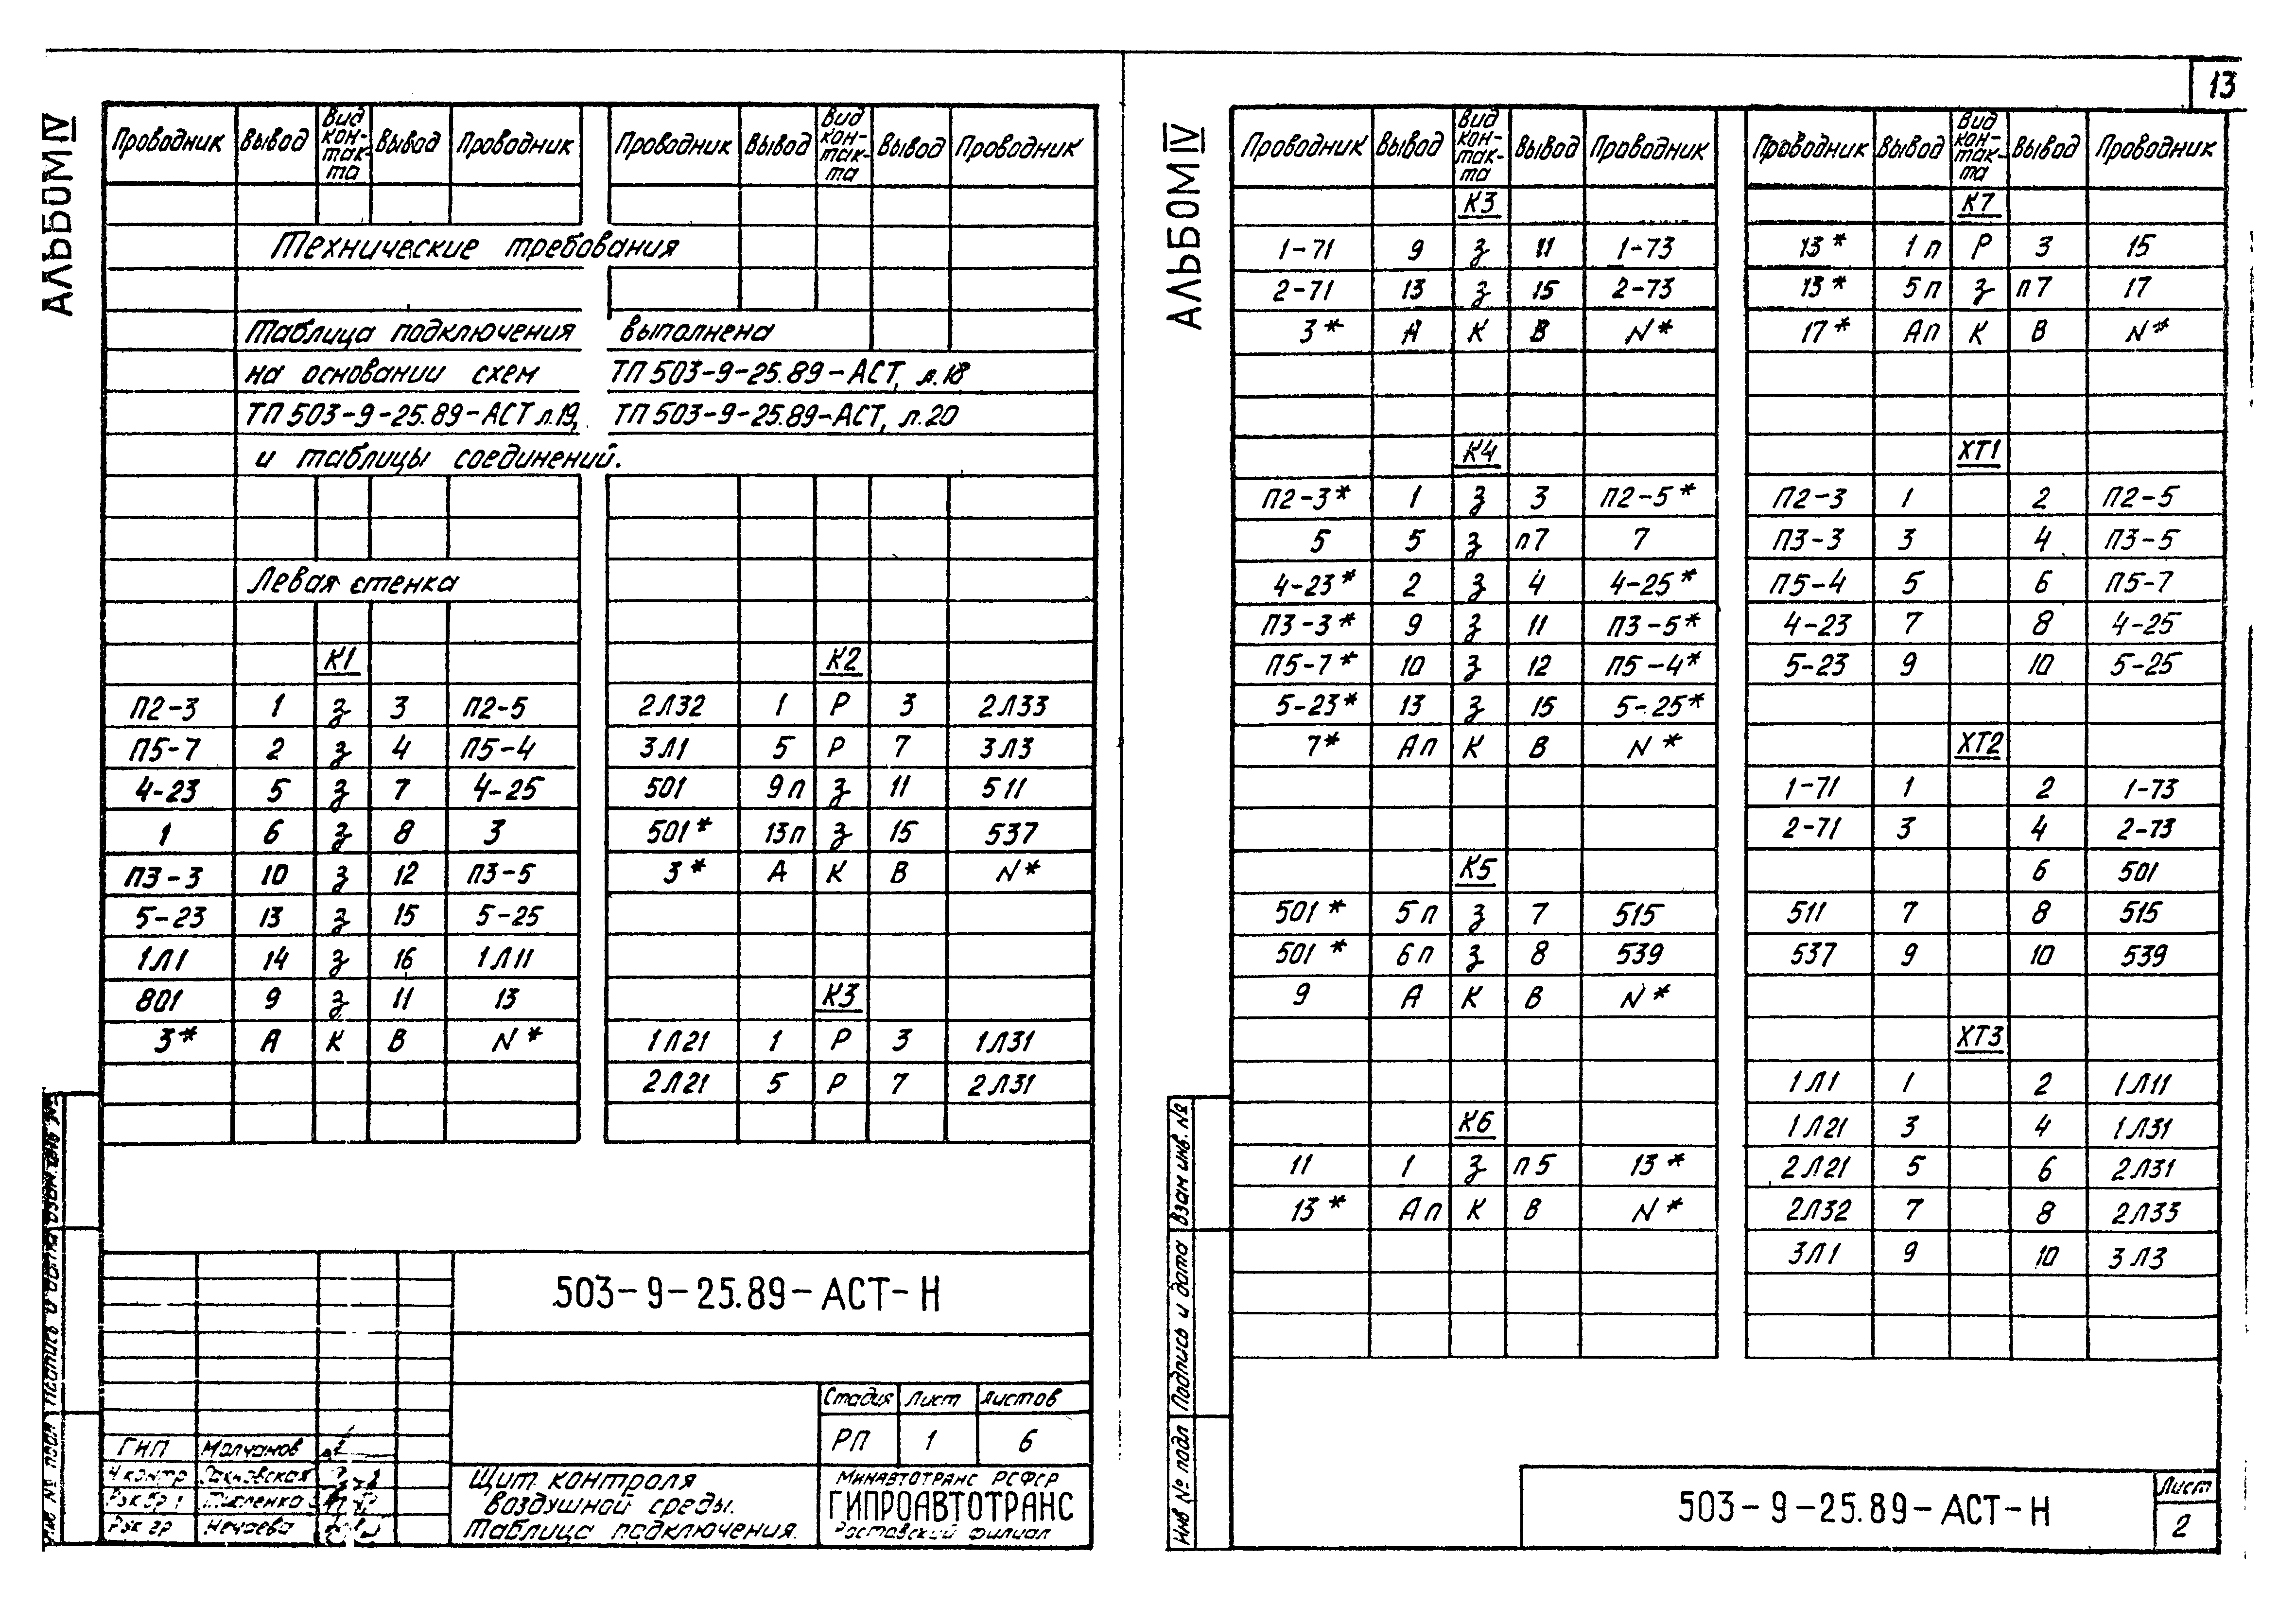 13
АЛЬБОМ IV
Проводник Вывод Вид контакта Вывод Проводник
Проводник Вывод Вид контакта Вывод Проводник
Технические требования
Таблица подключения выполнена
на основании схем ТП 503-9-25.89-АСТ, л.18
ТП 503-9-25.89-АСТ л.19, ТП 503-9-25.89-АСТ, л.20
и таблицы соединений.
Левая стенка
К1
П2-3 1 з 3 П2-5
П5-7 2 з 4 П5-4
4-23 5 з 7 4-25
1 6 з 8 3
П3-3 10 з 12 П3-5
5-23 13 з 15 5-25
1Л1 14 з 16 1Л11
801 9 з 11 13
3* А К В N*
К2
2Л32 1 Р 3 2Л33
3Л1 5 Р 7 3Л3
501 9п з 11 511
501* 13п з 15 537
3* А К В N*
К3
1Л21 1 Р 3 1Л31
2Л21 5 Р 7 2Л31
503-9-25.89-АСТ-Н
Стадия Лист Листов
РП 1 6
ГИП Молчанов
Н контр
Рук гр Нечаева
Щит контроля
воздушной среды.
Таблица подключения.
Минавтотранс РСФСР
ГИПРОАВТОТРАНС
Ростовский филиал
АЛЬБОМ IV
Проводник Вывод Вид контакта Вывод Проводник
К3
1-71 9 з 11 1-73
2-71 13 з 15 2-73
3* А К В N*
К4
П2-3* 1 з 3 П2-5*
5 5 з п7 7
4-23* 2 з 4 4-25*
П3-3* 9 з 11 П3-5*
П5-7* 10 з 12 П5-4*
5-23* 13 з 15 5-25*
7* Ап К В N*
К5
501* 5п з 7 515
501* 6п з 8 539
9 А К В N*
К6
11 1 з п5 13*
13* Ап К В N*
Проводник Вывод Вид контакта Вывод Проводник
К7
13* 1п Р 3 15
13* 5п з п7 17
17* Ап К В N*
ХТ1
П2-3 1 2 П2-5
П3-3 3 4 П3-5
П5-4 5 6 П5-7
4-23 7 8 4-25
5-23 9 10 5-25
ХТ2
1-71 1 2 1-73
2-71 3 4 2-73
6 501
511 7 8 515
537 9 10 539
ХТ3
1Л1 1 2 1Л11
1Л21 3 4 1Л31
2Л21 5 6 2Л31
2Л32 7 8 2Л33
3Л1 9 10 3Л3
Инв № подл Подпись и дата Взам инв. №
503-9-25.89-АСТ-Н
Лист
2